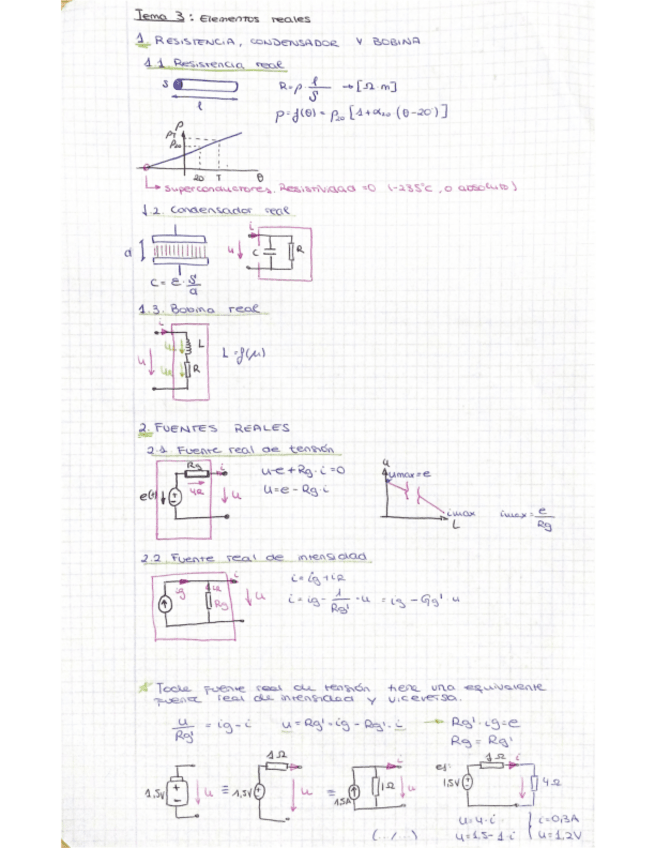 Tema 3: Elementos reales
1. RESISTENCIA, CONDENSADOR Y BOBINA
1.1. Resistencia real
S
l
R=ρ· l/S → [Ω m]
ρ=f(θ)= ρ20 [1+α20 (θ-20)]
ρ
ρT
ρ20
20 T θ
Superconductores. Resistividad =0 (-235ºC, 0 absoluto)
1.2. Condensador real
d
i
u
C
R
C= ε· S/d
1.3. Bobina real
i
u
L
R
L=f(μ)
2. FUENTES REALES
2.1 Fuente real de tensión
Rg
i
e(t)
uR
u
u-e+Rg·i=0
u=e-Rg·i
u
umax=e
imax
imax= e/Rg
2.2. Fuente real de intensidad
ig
i
u
Rg
u
i= ig- 1/Rg' ·u = ig - Gg' u
* Toda fuente real de tensión tiene una equivalente
fuente real de intensidad y viceversa.
u/Rg' = ig-i u=Rg'·ig-Rg'·i → Rg'·ig=e
Rg=Rg'
1,5V u ≡ 1,5V 1Ω u ≡ 1,5A 1Ω i u
ej: 1,5V 1Ω i 4Ω
u=4·i
u=1,5-1·i
i=0,3A
u=1,2V
(.../...)